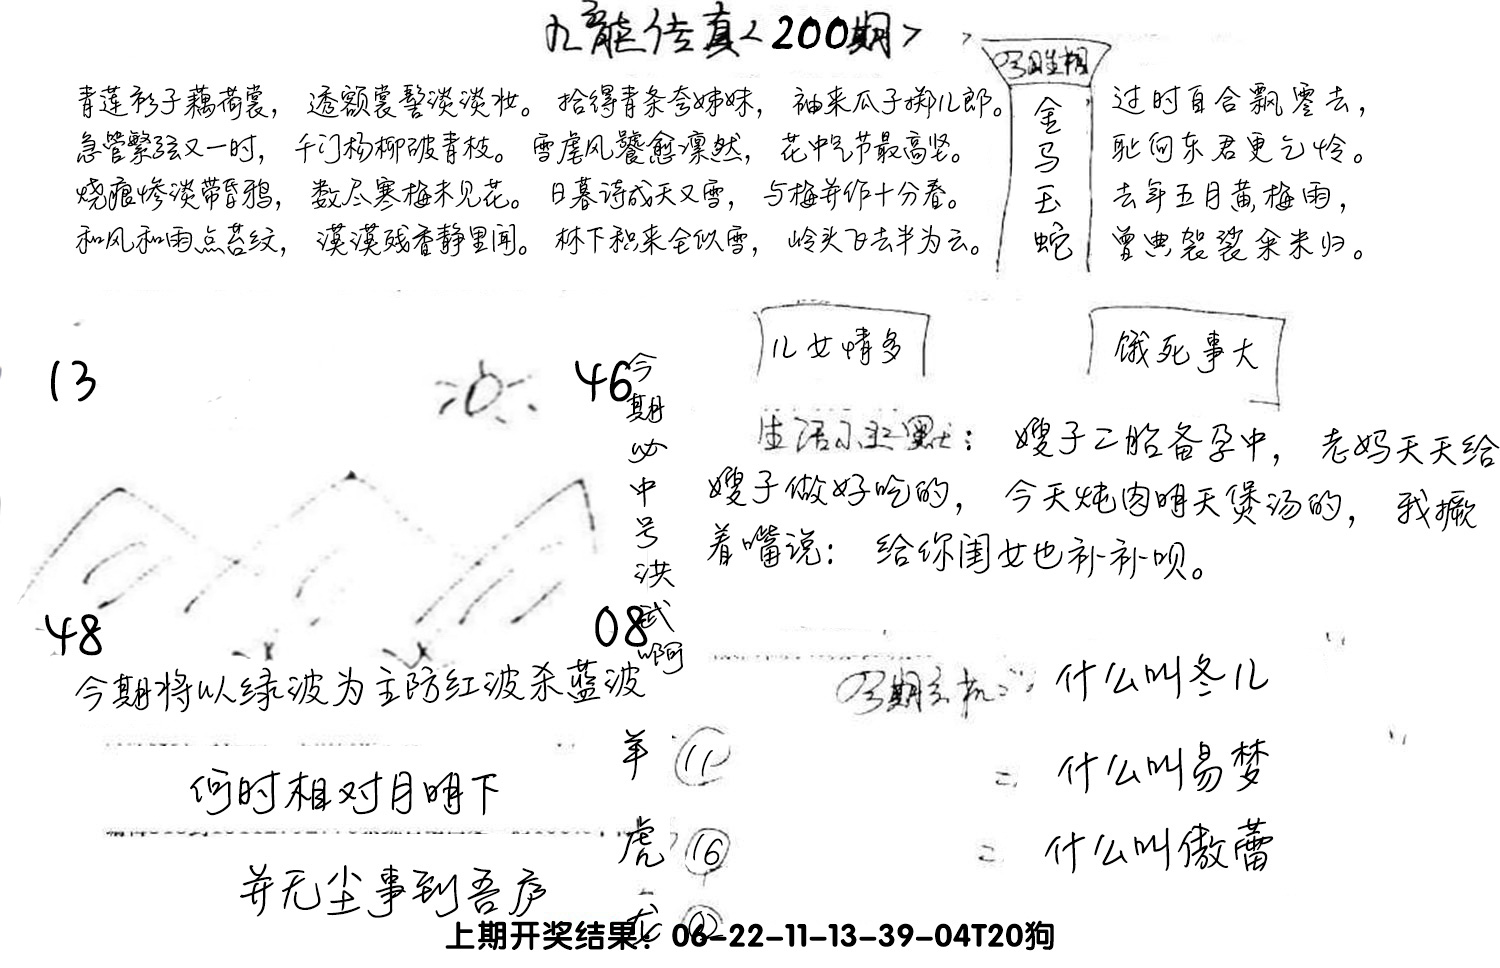 九龙传真<200期>
今期生相
金马玉蛇
青莲衫子藕荷裳，透额裳髻淡淡妆。拾得青条夸姊妹，袖来瓜子掷儿郎。
急管繁弦又一时，千门杨柳破青枝。雪虐风饕愈凛然，花中气节最高坚。
烧痕惨淡带昏鸦，数尽寒梅未见花。日暮诗成天又雪，与梅并作十分春。
和风和雨点苔纹，漠漠残香静里闻。林下积来全似雪，岭头飞去半为云。
过时自合飘零去，
耻向东君更乞怜。
去年五月黄梅雨，
曾典袈裟籴米归。
13
46
48
08
今期必中号洪武啊
今期将以绿波为主防红波杀蓝波
儿女情多
饿死事大
生活小幽默：嫂子二胎备孕中，老妈天天给
嫂子做好吃的，今天炖肉明天煲汤的，我撅
着嘴说：给你闺女也补补呗。
今期玄机：什么叫冬儿
= 什么叫易梦
= 什么叫傲蕾
何时相对月明下
并无尘事到吾庐
羊 11
虎 16
龙 02
上期开奖结果：06-22-11-13-39-04T20狗